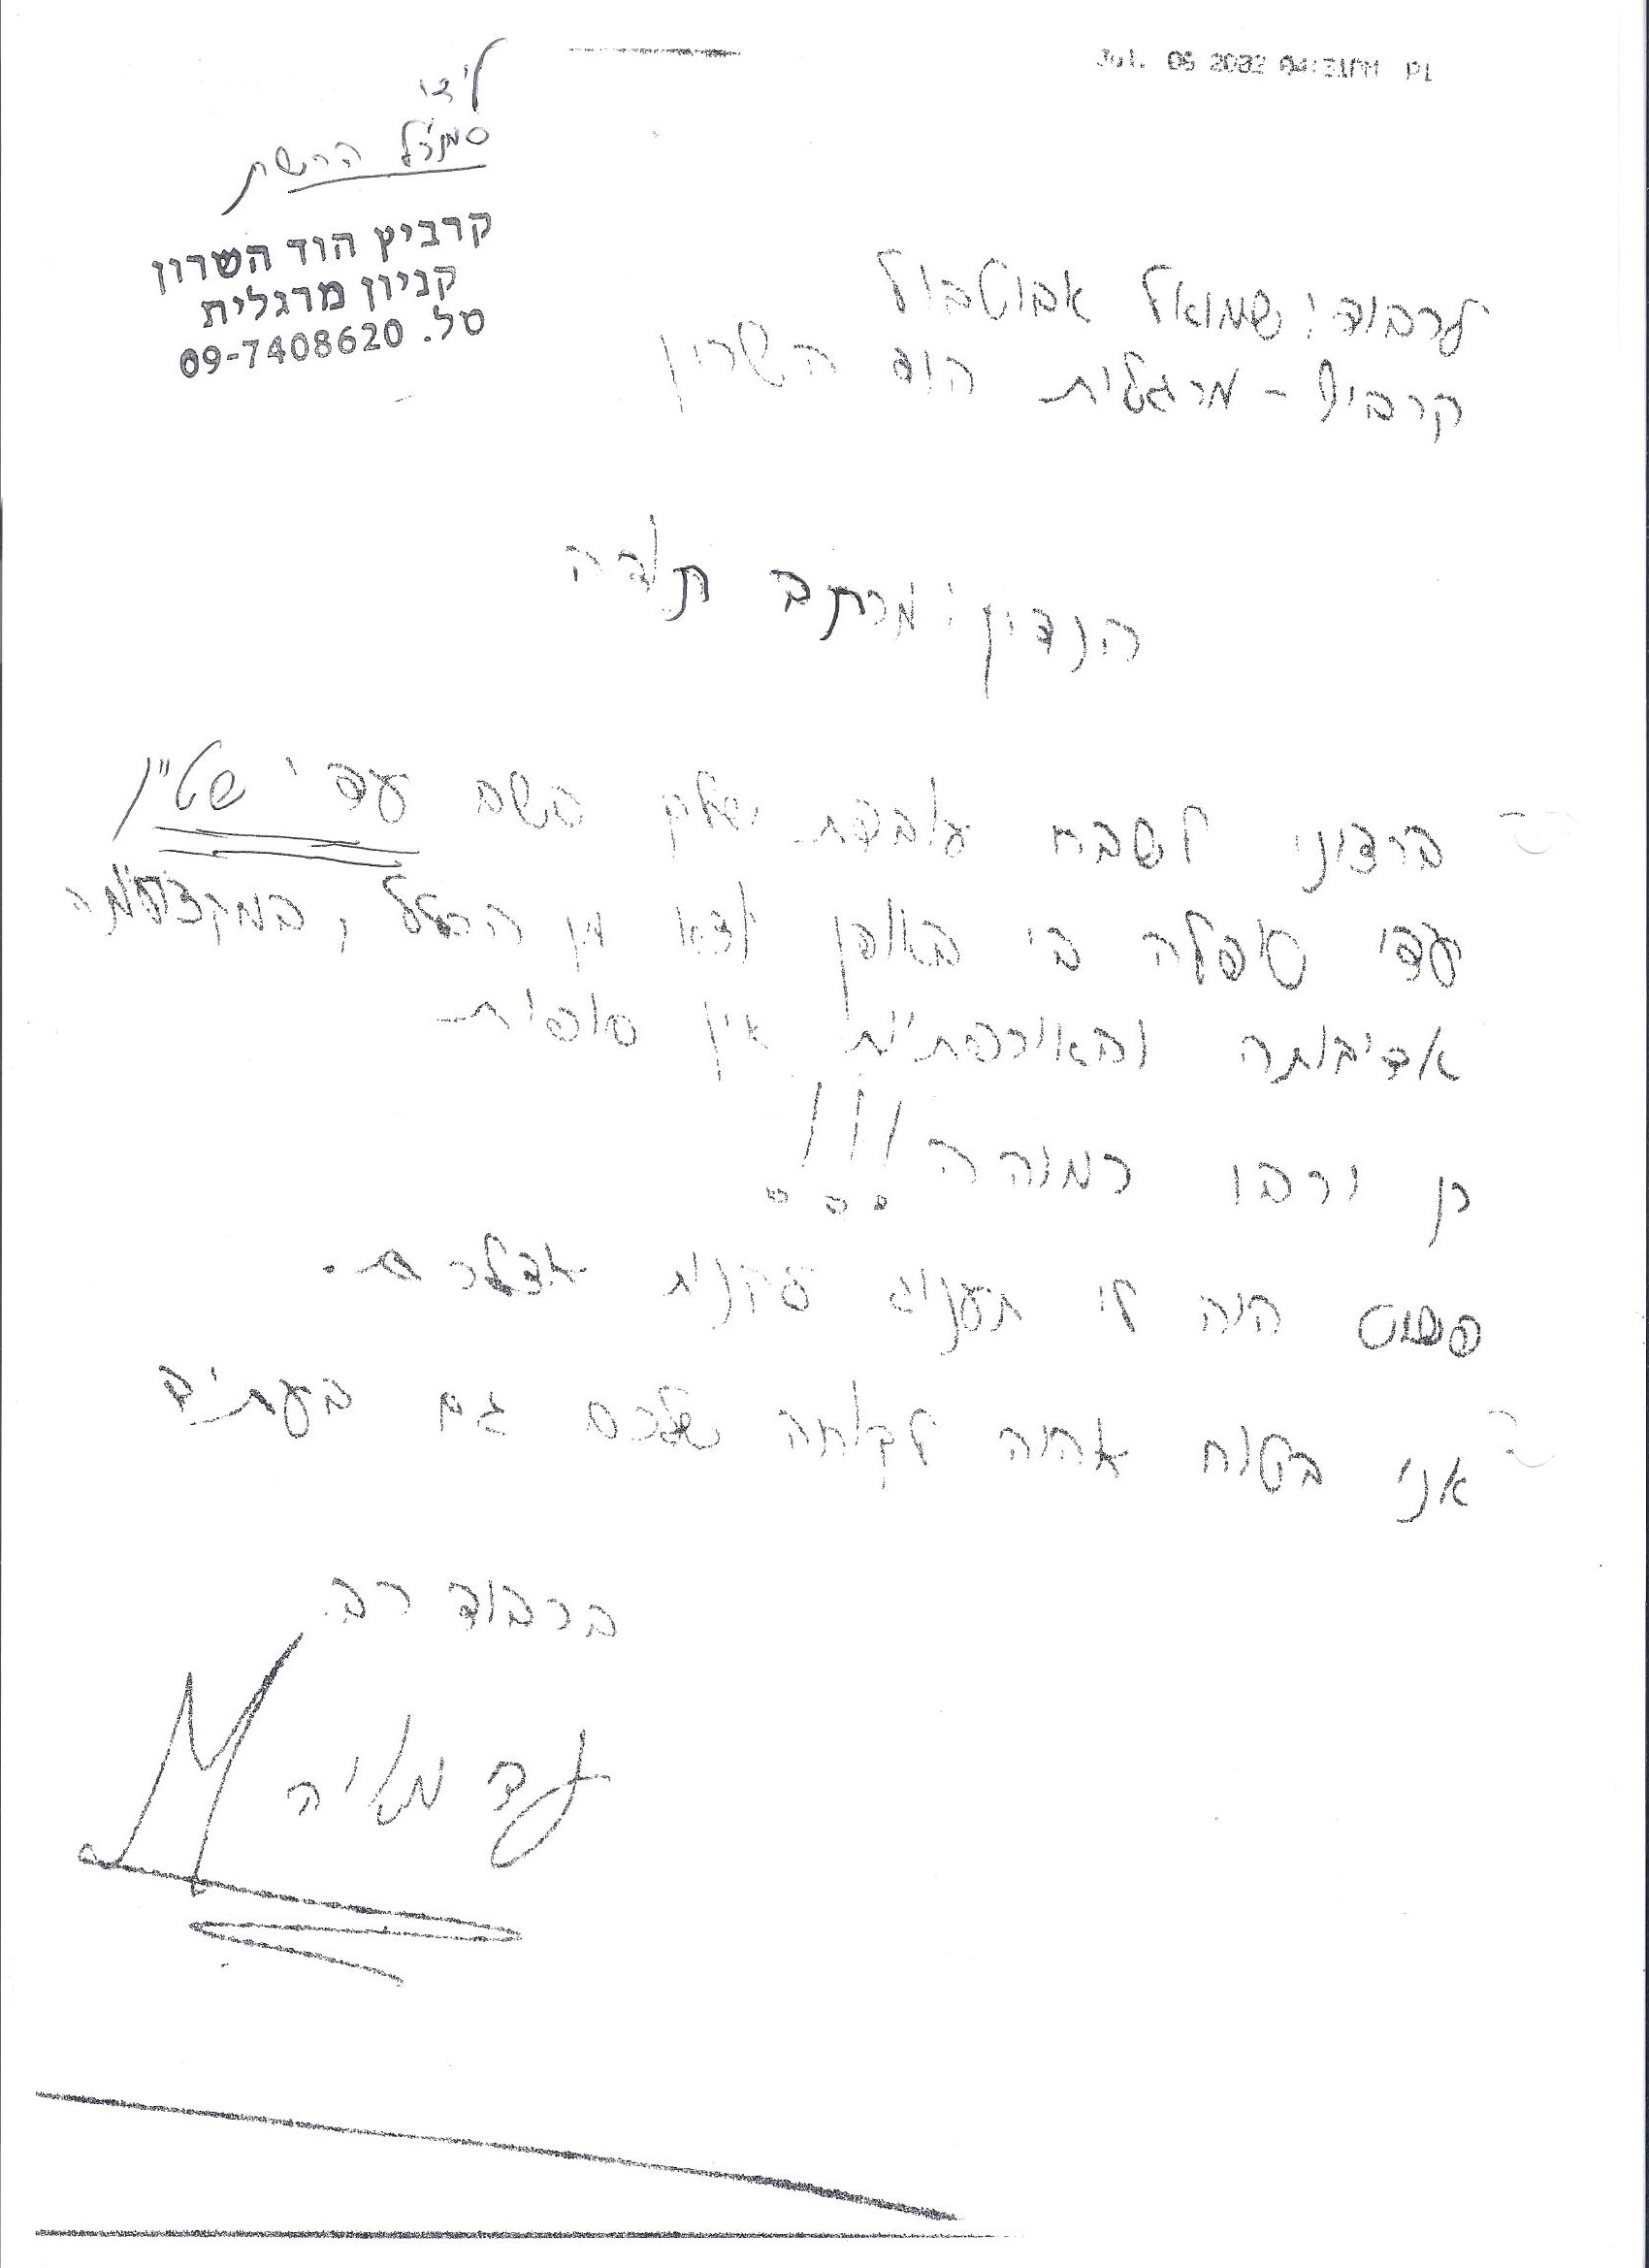 Jul. 06 2002 04:31PM P1
סמנכ"ל הרשת
קרביץ הוד השרון
קניון מרגלית
טל. 09-7408620
לכבוד: שמואל אבוטבול
קרביץ - מרגלית הוד השרון
הנדון: מכתב תודה
ברצוני לשבח עובדת שלך בשם עדי שטיין
עדי טיפלה בי באופן יוצא מן הכלל, במקצועיותה
אדיבותה ובאיכפתיות אין סופית
כן ירבו כמוהה!!!
פשוט היה לי תענוג לקנות אצלכם.
אני בטוח אהיה לקוחה שלכם גם בעתיד
בכבוד רב